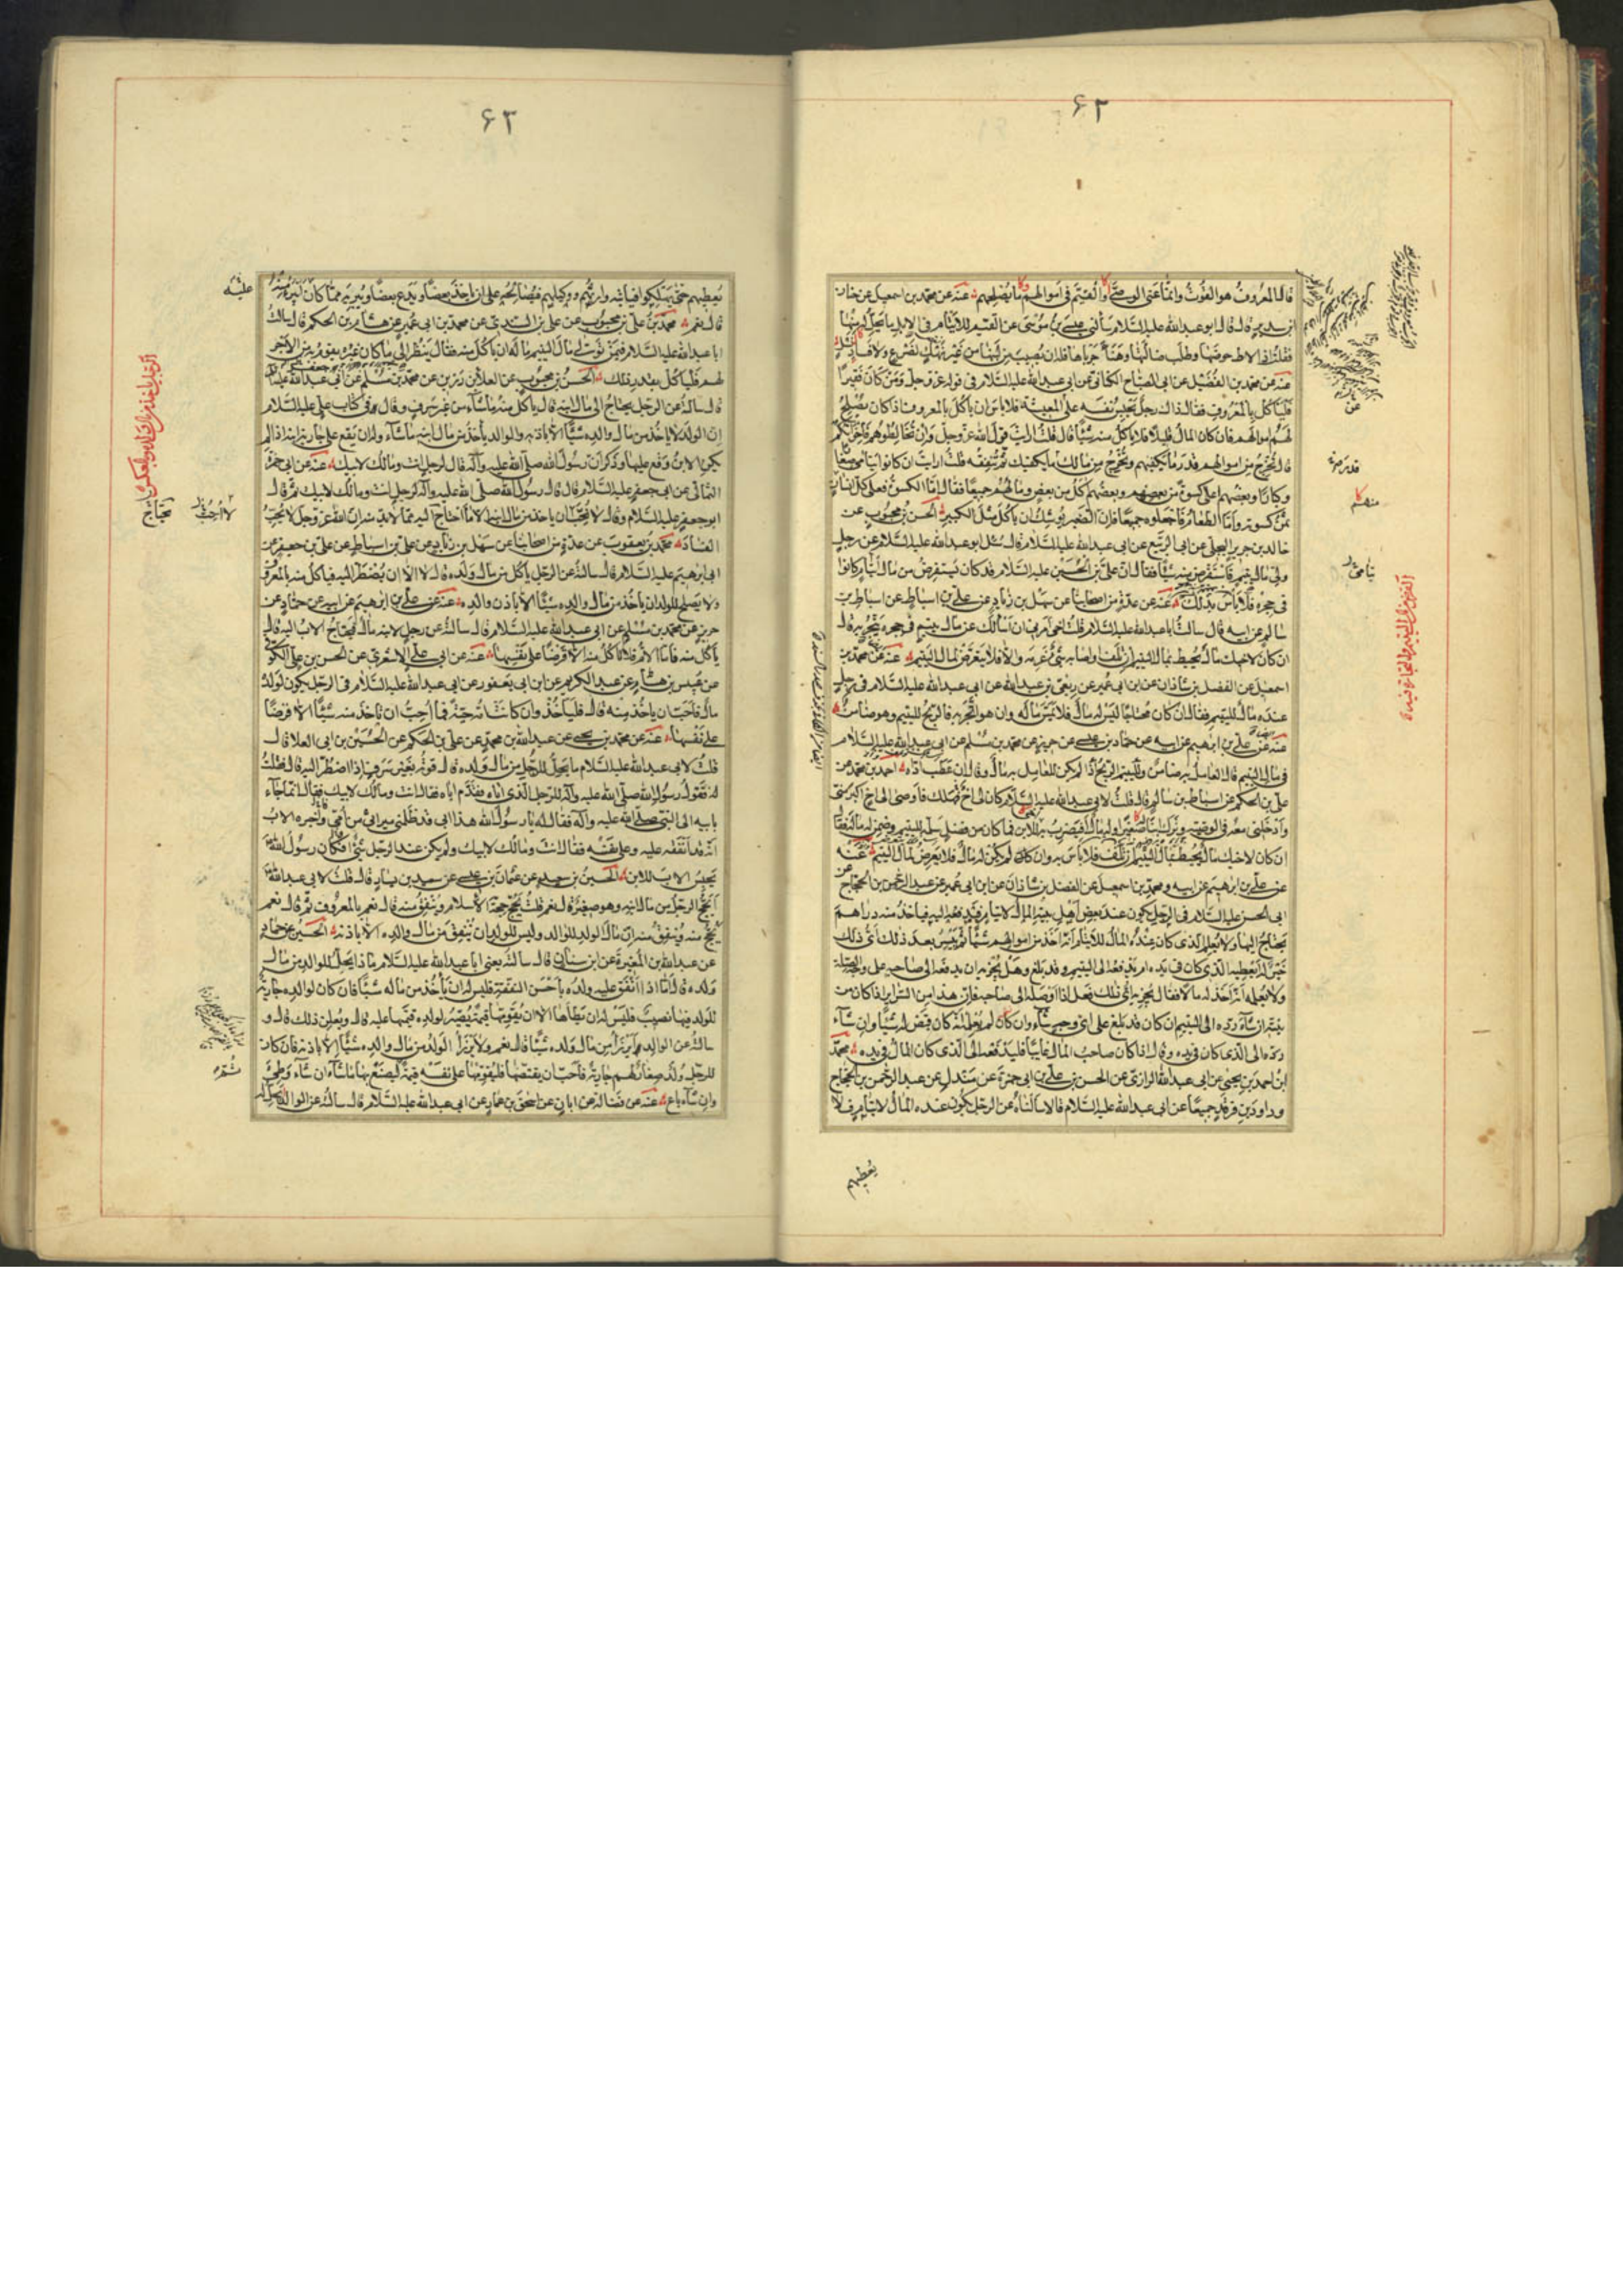 ۶۲
قال المعروف هو القوت وانما عنى الوصى او القيم فى اموالهم ما يصلحهم عنه عن محمد بن اسمعيل عن حنان
ابن سدير قال قال ابو عبد الله عليه السلام سألنى عيسى بن موسى عن القيم للايتام فى الابل ما يحل له منها
فقلت اذا لاط حوضها وطلب ضالتها وهنأ جرباها فله ان يصيب من لبنها من غير نهك لضرع ولا فساد لنسل
عنه عن محمد بن الفضيل عن ابى الصباح الكنانى عن ابى عبد الله عليه السلام فى قوله عز وجل ومن كان فقيرا
فليأكل بالمعروف فقال ذاك رجل يحبس نفسه على المعيشة فلا باس ان ياكل بالمعروف اذا كان يصلح
لهم اموالهم فان كان المال قليلا فلا ياكل منه شيئا قال قلت ارايت قول الله عز وجل وان تخالطوهم فاخوانكم
قال تخرج من اموالهم قدر ما يكفيهم وتخرج من مالك ما يكفيك ثم تنفقه قلت ارايت ان كانوا ايتامى صغارا
وكبارا وبعضهم اعلى كسوة من بعضهم وبعضهم آكل من بعض ومالهم جميعا فقال اما الكسوة فعلى كل انسان
ثمن كسوته واما الطعام فاجعلوه جميعا فان الصغير يوشك ان ياكل مثل الكبير الحسن بن محبوب عن
خالد بن جرير البجلى عن ابى الربيع عن ابى عبد الله عليه السلام قال سئل ابو عبد الله عليه السلام عن رجل
ولى مال يتيم فاستقرض منه شيئا فقال ان على بن الحسين عليه السلام قد كان يستقرض من مال ايتام كانوا
فى حجره فلا باس بذلك عنه عن عدة من اصحابنا عن سهل بن زياد عن على بن اسباط عن اسباط بن
سالم عن ابيه قال سالت ابا عبد الله عليه السلام قلت اخى امرنى ان اسالك عن مال يتيم فى حجره يتجر به قال
ان كان لاخيك مال يحيط بمال اليتيم ان تلف او اصابه شئ غرمه والا فلا يتعرض لمال اليتيم عنه عن محمد بن
اسمعيل عن الفضل بن شاذان عن ابن ابى عمير عن ربعى بن عبد الله عن ابى عبد الله عليه السلام فى رجل
عنده مال لليتيم فقال ان كان محتاجا ليس له مال فلا يمس ماله وان هو اتجر به فالربح لليتيم وهو ضامن
عنه عن على بن ابرهيم عن ابيه عن حماد بن عيسى عن حريز عن محمد بن مسلم عن ابى عبد الله عليه السلام
فى مال اليتيم قال العامل به ضامن ولليتيم الربح اذا لم يكن للعامل به مال وقال ان عطب اداه احمد بن محمد عن
على بن الحكم عن اسباط بن سالم قال قلت لابى عبد الله عليه السلام كان لى اخ هلك فاوصى الى اخ اكبر منى
وادخلنى معه فى الوصية وترك ابنا صغيرا وله مال افيضرب به للابن فما كان من فضل سلمه لليتيم وضمن له ماله فقال
ان كان لاخيك مال يحيط بمال اليتيم ان تلف فلا باس به وان كان لم يكن له مال فلا يعرض لمال اليتيم عنه
عن على بن ابرهيم عن ابيه ومحمد بن اسمعيل عن الفضل بن شاذان عن ابن ابى عمير عن عبد الرحمن بن الحجاج
ابى الحسن عليه السلام فى الرجل يكون عند بعض اهل بيته المال لايتام فيدفعه اليه فياخذ منه دراهم
يحتاج اليها ولا يعلم الذى كان عنده المال للايتام انه اخذ من اموالهم شيئا ثم ييسر بعد ذلك اى ذلك
خير له ايعطيه الذى كان فى يده ام يدفعه الى اليتيم وقد بلغ وهل يجزيه ان يدفعه الى صاحبه على وجه الصلة
ولا يعلمه انه اخذ له مالا فقال يجزيه اى ذلك فعل اذا اوصله الى صاحبه فان هذا من السرائر اذا كان من
نيته ان شاء رده الى اليتيم ان كان قد بلغ على اى وجه شاء وان كان لم يعلمه انه كان قبض له شيئا وان شاء
رده الى الذى كان فى يده وقال اذا كان صاحب المال غايبا فليدفعه الى الذى كان المال فى يده محمد
ابن احمد بن يحيى عن ابى عبد الله الرازى عن الحسن بن على بن ابى حمزة عن مندل عن عبد الرحمن بن الحجاج
وداود بن فرقد جميعا عن ابى عبد الله عليه السلام قالا سألناه عن الرجل يكون عنده المال لايتام فلا
يعطيهم
عن
قدرمة
منهم
يتامى
۶۳
يعطيهم حتى يهلكوا فياتيه وارثهم ووكيلهم فيصالحه على ان ياخذ بعضا ويدع بعضا ويبريه مما كان ايبرأ منه
قال نعم محمد بن على بن محبوب عن على بن السندى عن محمد بن ابى عمير عن هشام بن الحكم قال سالت
ابا عبد الله عليه السلام فيمن تولى مال اليتيم ماله ان ياكل منه فقال ينظر الى ما كان غيره يقوم به من الاجر
لهم فلياكل بقدر ذلك الحسن بن محبوب عن العلاء بن رزين عن محمد بن مسلم عن ابى عبد الله عليه السلام
قال سالته عن الرجل يحتاج الى مال ابنه قال ياكل منه ما شاء من غير سرف وقال فى كتاب على عليه السلام
ان الولد لا ياخذ من مال والده شيئا الا باذنه والوالد يأخذ من مال ابنه ما شاء وله ان يقع على جارية ابنه اذا لم
يكن الابن وقع عليها وذكر ان رسول الله صلى الله عليه وآله قال لرجل انت ومالك لابيك عنه عن ابى حمزة
الثمالى عن ابى جعفر عليه السلام قال قال رسول الله صلى الله عليه وآله لرجل انت ومالك لابيك ثم قال
ابو جعفر عليه السلام وقال لا نحب ان ياخذ من مال ابنه الا ما احتاج اليه مما لا بد منه ان الله عز وجل لا يحب
الفساد محمد بن يعقوب عن عدة من اصحابنا عن سهل بن زياد عن على بن اسباط عن على بن جعفر عن
ابى ابرهيم عليه السلام قال سالته عن الرجل ياكل من مال ولده قال لا الا ان يضطر اليه فياكل منه بالمعروف
ولا يصلح للولد ان ياخذ من مال والده شيئا الا باذن والده عنه عن على بن ابرهيم عن ابيه عن حماد عن
حريز عن محمد بن مسلم عن ابى عبد الله عليه السلام قال سالته عن رجل لابنه مال فيحتاج الاب اليه قال
ياكل منه فاما الام فلا تاكل منه الا قرضا على نفسها عنه عن ابى على الاشعرى عن الحسن بن على الكوفى
عن عبيس بن هشام عن عبد الكريم عن ابن ابى يعفور عن ابى عبد الله عليه السلام فى الرجل يكون لولده
مال فاحب ان ياخذ منه قال فليأخذ وان كانت امه حية فما احب ان تاخذ منه شيئا الا قرضا
على نفسها عنه عن محمد بن يحيى عن عبد الله بن محمد عن على بن الحكم عن الحسين بن ابى العلا قال
قلت لابى عبد الله عليه السلام ما يحل للرجل من مال ولده قال قوته بغير سرف اذا اضطر اليه قال فقلت
له فقول رسول الله صلى الله عليه وآله للرجل الذى اتاه فقدم اباه فقال انت ومالك لابيك فقال انما جاء
بابيه الى النبى صلى الله عليه وآله فقال له يا رسول الله هذا ابى قد ظلمنى ميراثى من امى واخبره الاب
انه قد انفقه عليه وعلى نفسه فقال انت ومالك لابيك ولم يكن عند الرجل شئ افكان رسول الله
يحبس الاب للابن الحسين بن سعيد عن عثمان بن عيسى عن سعيد بن يسار قال قلت لابى عبد الله
ايحج الرجل من مال ابنه وهو صغير قال نعم قلت يحج حجة الاسلام وينفق منه قال نعم بالمعروف ثم قال نعم
يحج منه وينفق منه ان مال الولد للوالد وليس للولد ان ينفق من مال والده الا باذنه الحسين عن حماد
عن عبد الله بن المغيرة عن ابن سنان قال سالته يعنى ابا عبد الله عليه السلام ماذا يحل للوالد من مال
ولده قال اما اذا انفق عليه ولده باحسن النفقة فليس له ان يأخذ من ماله شيئا فان كان لوالده جارية
للولد فيها نصيب فليس له ان يطأها الا ان يقومها قيمة يصير لولده قيمتها عليه قال ويعلن ذلك قال و
سالته عن الوالد ايرزأ من مال ولده شيئا قال نعم ولا يرزأ الولد من مال والده شيئا الا باذنه فان كان
للرجل ولد صغار لهم جارية فاحب ان يفتضها فليقومها على نفسه قيمة ثم ليصنع بها ما شاء ان شاء وطئ
وان شاء باع عنه عن فضالة عن ابان عن اسحق بن عمار عن ابى عبد الله عليه السلام قال سالته عن الوالد يحل له
عليه
يحتاج